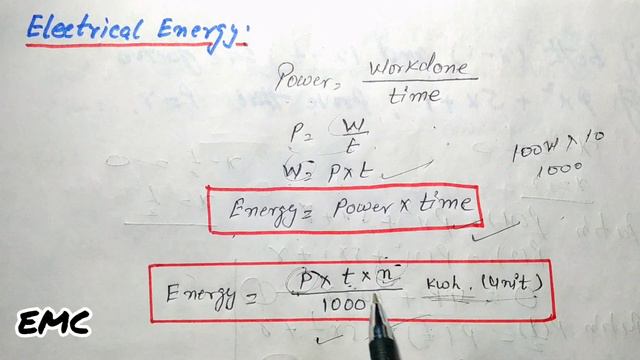 Electrical Energy:
Power = Workdone / time
P = W / t
W = P x t
100W x 10
1000
Energy = Power x time
Energy = P x t x n / 1000 kwh. (Unit)
EMC